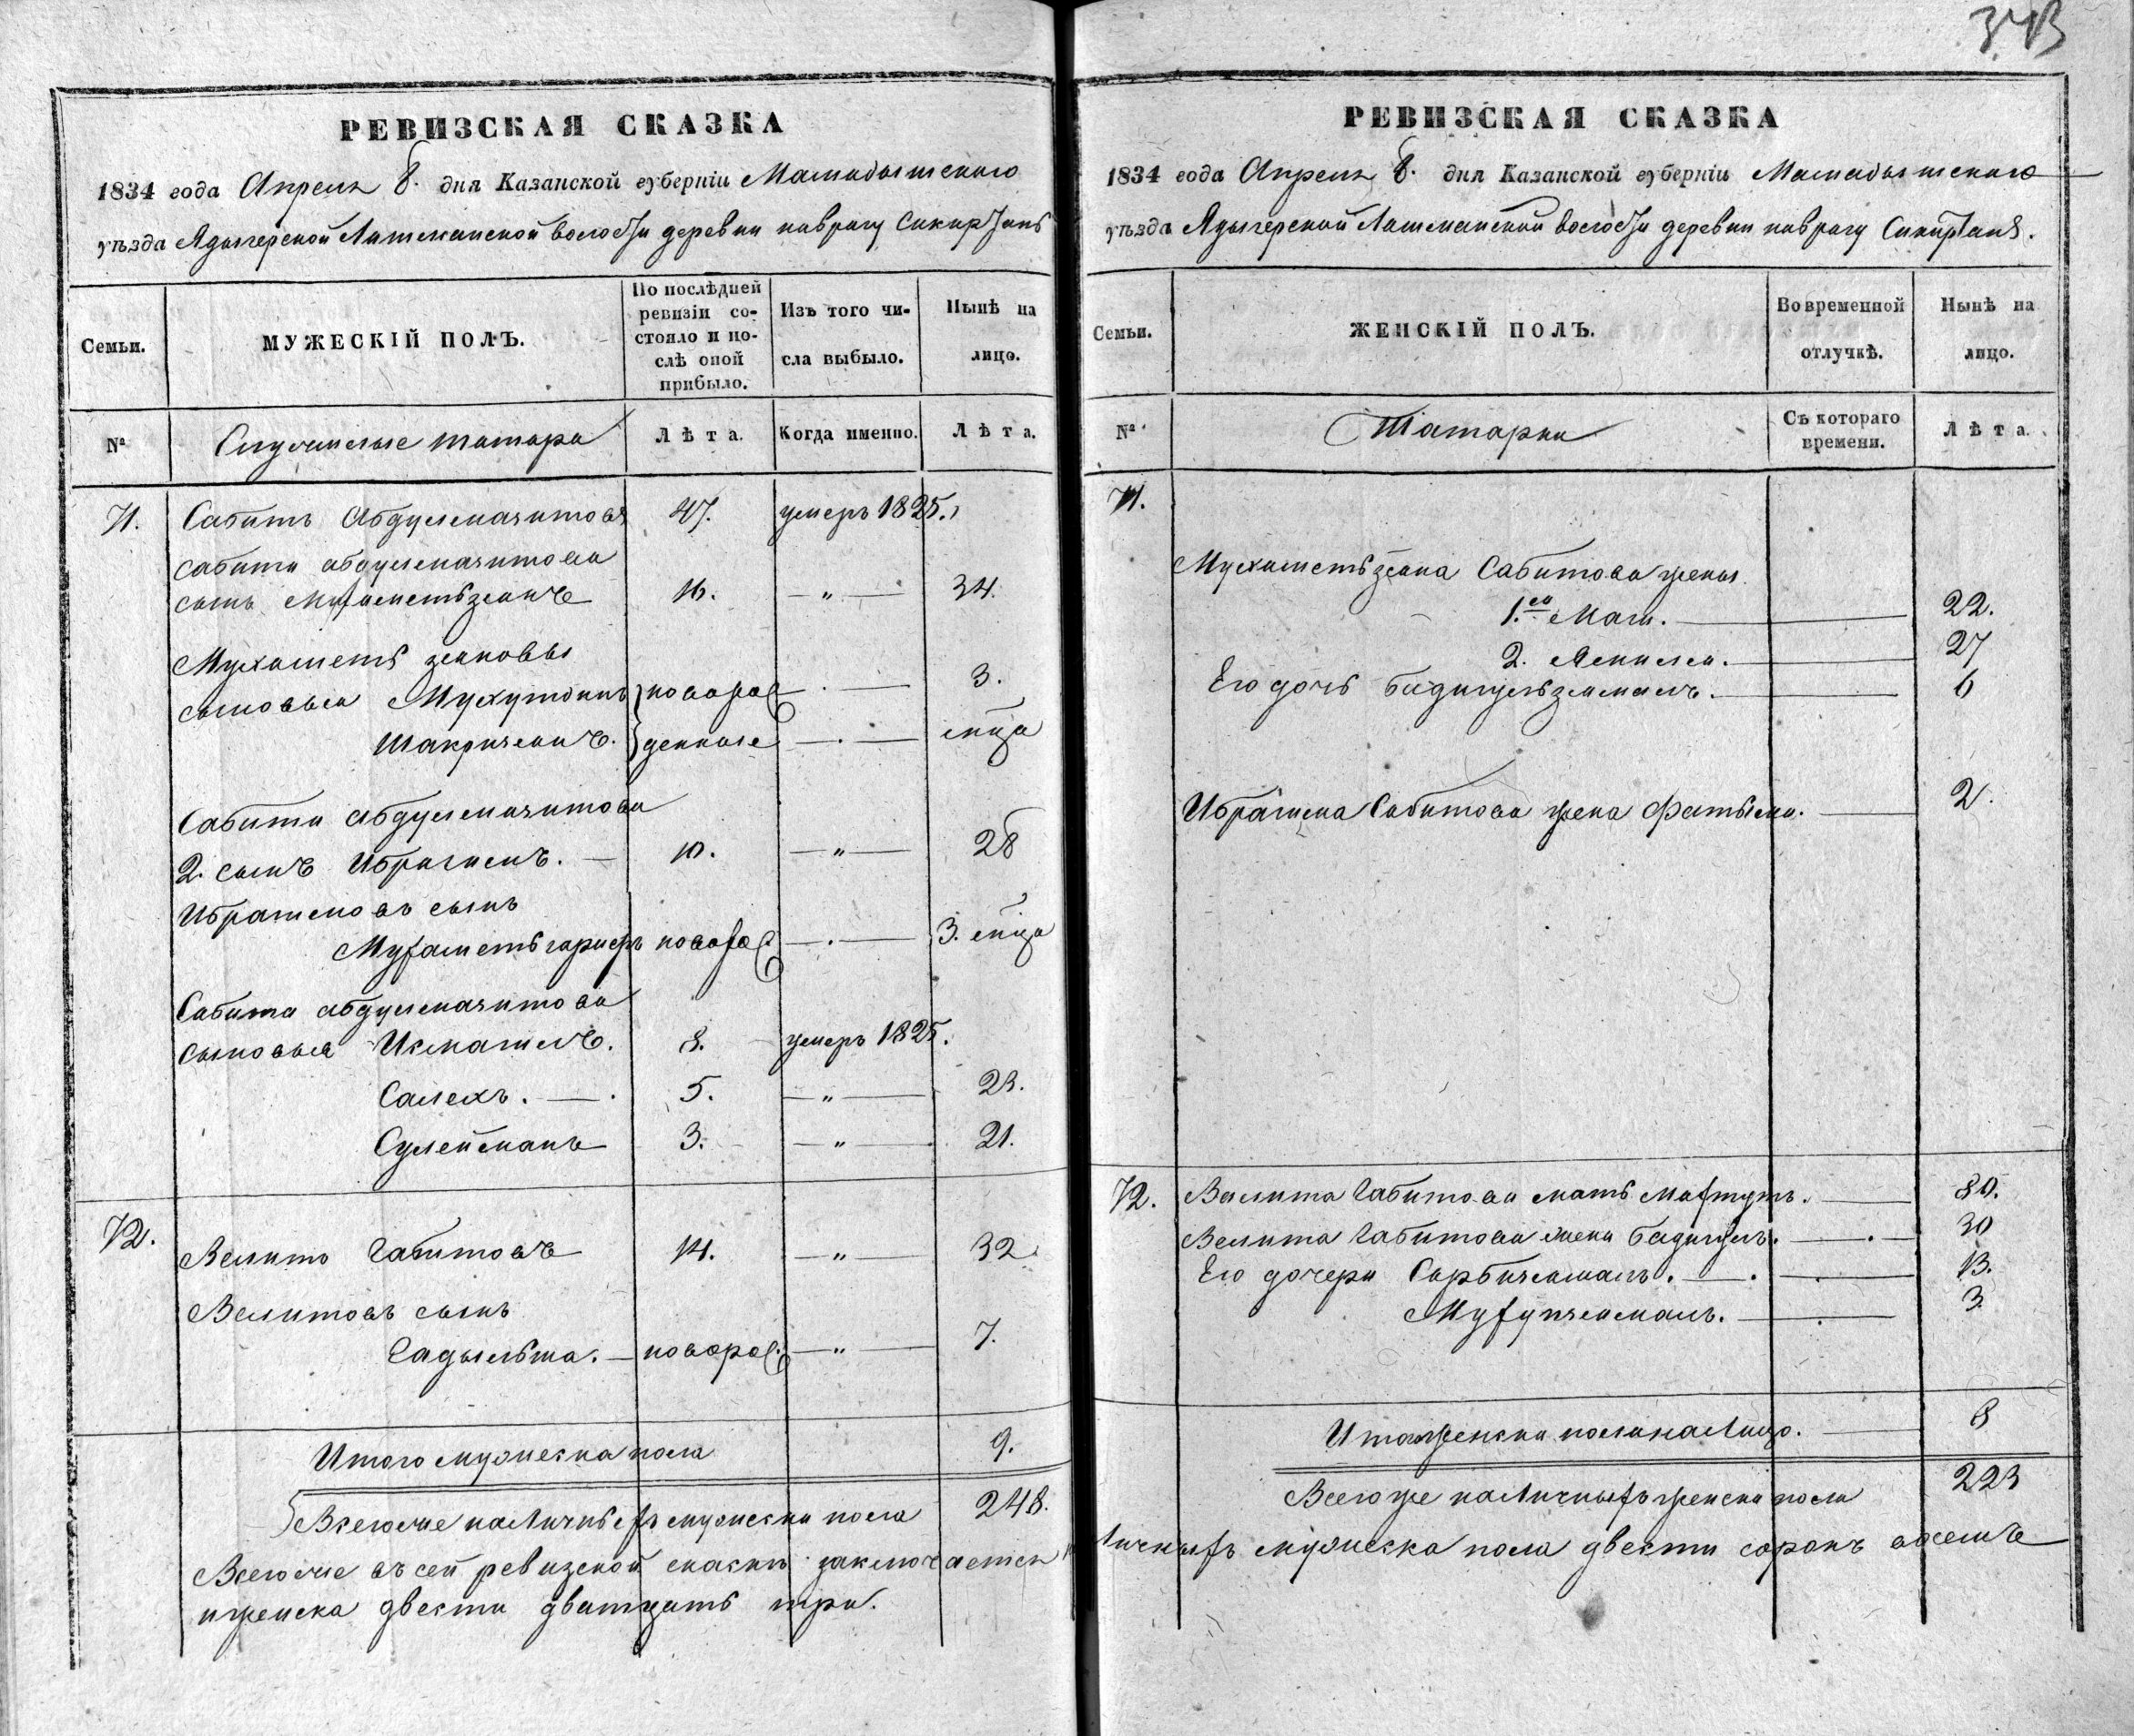 343
РЕВИЗСКАЯ СКАЗКА
1834 года Апреля 8. дня Казанской губерніи Мамадышскаго
уѣзда Адыгерской Лашманской волости деревни поврагу Сикиртанъ
Семьи.
МУЖЕСКІЙ ПОЛЪ.
По послѣдней ревизіи состояло и послѣ оной прибыло.
Изъ того числа выбыло.
Нынѣ на лицо.
№
Служилые татара
Лѣта.
Когда именно.
Лѣта.
71. Сабитъ Абдулмазитовъ 47. умеръ 1825.
Сабита абдулмазитова
сынъ Мухаметьзянъ 16. — „ — 34.
Мухаметь зяновы
сыновья Мухутдинъ новорож 3.
Шакирзянъ. денные мца
Сабита абдулмазитова
2. сынъ Ибрагимъ. — 10. — „ — 28
Ибрагимовъ сынъ
Мухаметьгарифъ новорож — . — 3. мца
Сабита абдулмазитова
сыновья Исмагилъ. 8. умеръ 1825.
Салехъ. — . 5. — „ — 23.
Сулейманъ 3. — „ — 21.
72. Велитъ Габитовъ 14. — „ — 32
Велитовъ сынъ
Гадыльша. — новорож. — „ — 7.
Итого мужеска пола 9.
Всегоже наличныхъ мужеска пола 248.
Всегоже въ сей ревизской скаске заключается
и женска двести дватцать три.
РЕВИЗСКАЯ СКАЗКА
1834 года Апреля 8. дня Казанской губерніи Мамадышскаго
уѣзда Адыгерской Лашманской волости деревни поврагу Сикиртанъ.
Семьи.
ЖЕНСКІЙ ПОЛЪ.
Во временной отлучкѣ.
Нынѣ на лицо.
№
Татарки
Съ котораго времени.
Лѣта.
71.
Мухаметьзяна Сабитова жены
1.ая Маги. — 22.
2. — 27
Его дочь Бадигульзямалъ. — 6
Ибрагима Сабитова жена Фатыма. — 2.
72. Велита Габитова мать Махтупъ. — 80.
Велита Габитова жена Бадигулъ. — . — 30
Его дочери Сарбиземалъ. — . — 13.
Мухупземалъ. — 3.
Итого женска пола на лицо. — 8
Всего же наличныхъ женска пола 223
личныхъ мужеска пола двести сорокъ восемь